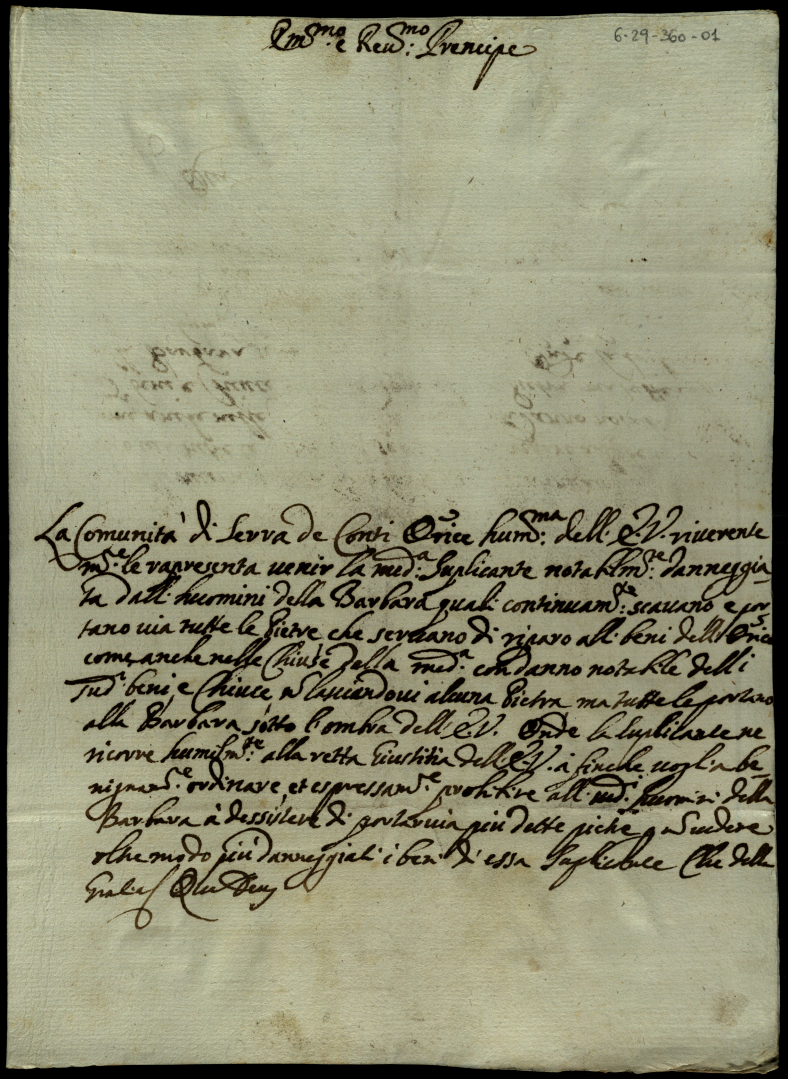 Em.mo e Reu.mo Prencipe
6-29-360-01
La Comunità di Serra de Conti O.rice hum.ma dell' E.V. riuerente
m.te le rapresenta uenir la med.a Suplicante notabilm.te danneggia
ta dall' huomini della Barbara quali continuam.te scauano e por
tano uia tutte le pietre che seruano di riparo alli beni dell' O.rice
come anche nelle Chiuse della med.a con danno notabile delli
sud.i beni, e Chiuse n lasciandoui alcuna pietra ma tutte le portano
alla Barbara sotto l'ombra dell' E.V. Onde la Suplicante ne
ricorre humilm.te alla retta Giustitia dell' E.V. à finche uoglia be
nignam.te ordinare, et espressam.te prohibire all' med.i huomini della
Barbara à desistere di portar uia più dette p n uedere
olt modo più danneggiati i beni di essa Suplicante Che della
gratia Deus